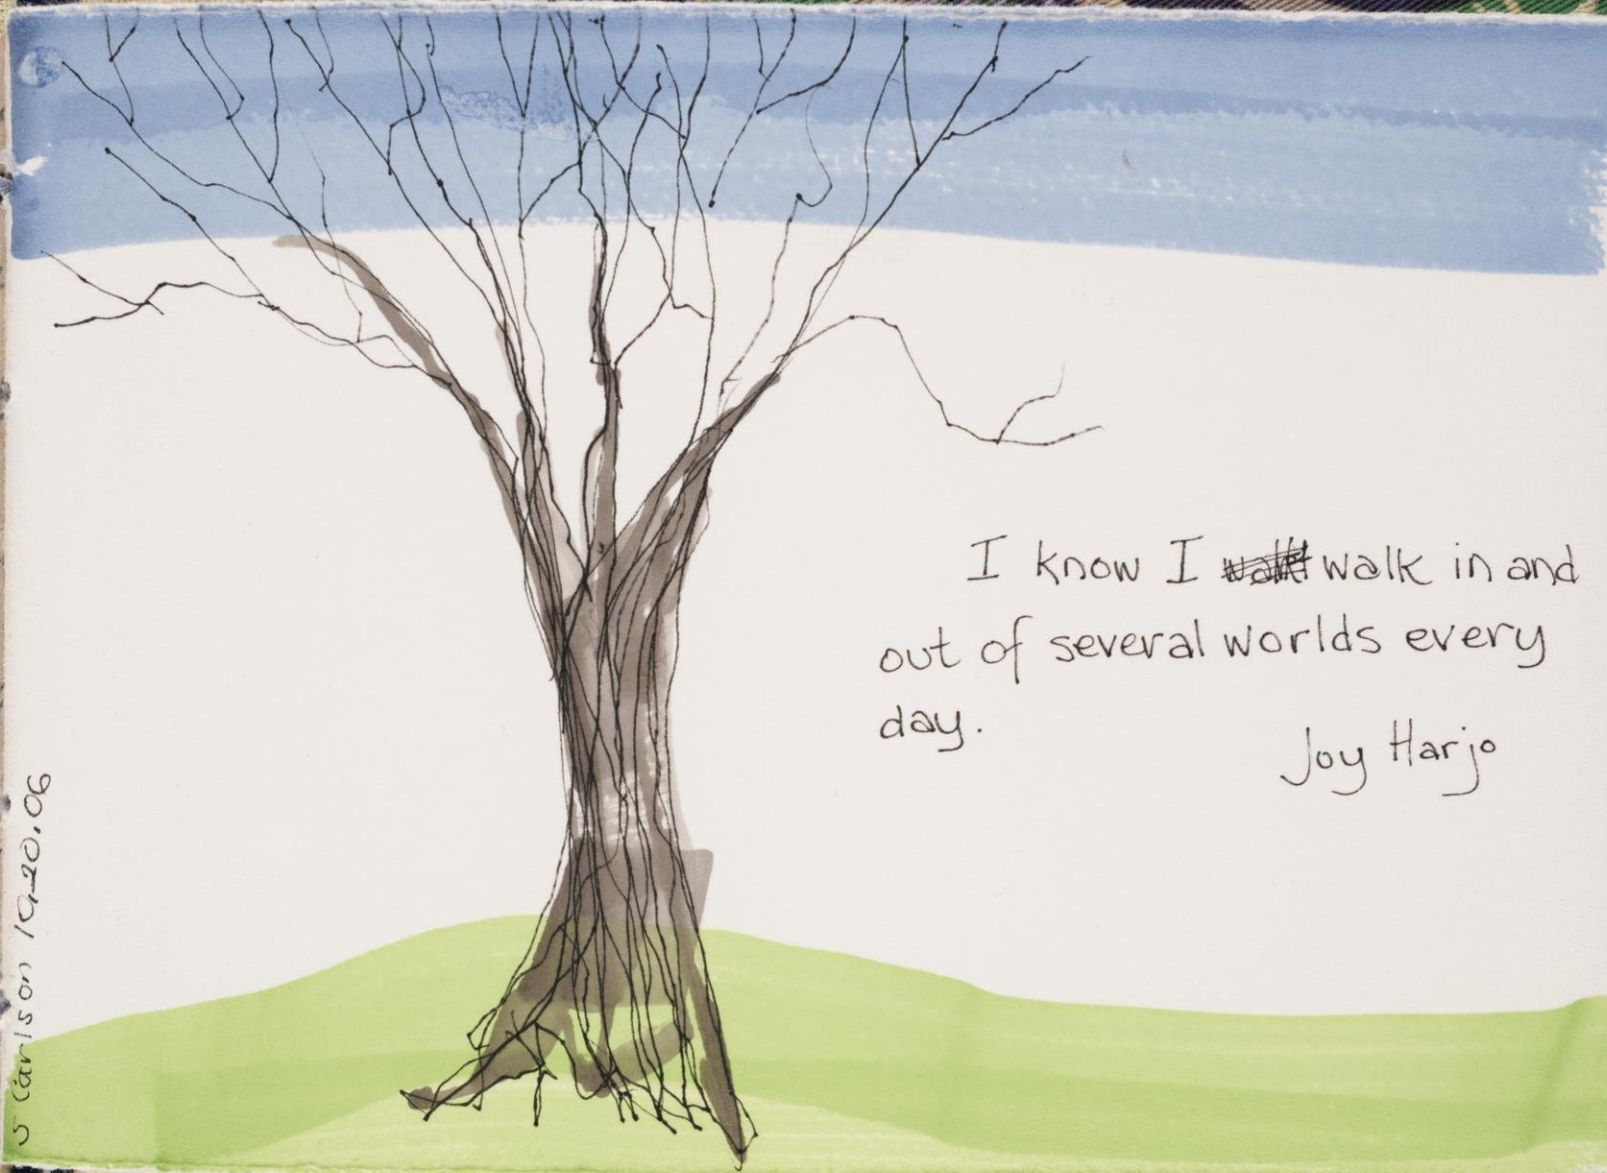 I know I walk walk in and
out of several worlds every
day.
Joy Harjo
S Carlson 10.20.06